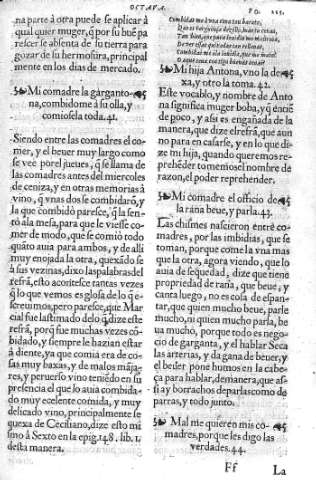 OCTAVA.
na parte à otra puede se aplicar à
qual quier muger, q̃ por su buẽ pa
rescer le absenta de su tierra para
gozar de su hermosura, principal
mente en dias de mercado.
Mi comadre la garganto-
na, combidome à su olla, y
comiosela toda. 41.
Siendo entre las comadres el co-
mer, y el beuer muy largo como
se vee por el jueues, q̃ se llama de
las comadres antes del miercoles
de ceniza, y en otras memorias à
vino, q̃ vnas dos se combidarõ, y
la que combidò paresce, q̃ la sen-
tò à la mesa, para que le viesse co-
mer de modo, que se comio todo
quãto auia para ambos, y de alli
muy enojada la otra, quexãdo se
à sus vezinas, dixo las palabras del
refrã, esto acontesce tantas vezes
q̃ lo que vemos es glosa de lo q̃ e-
storeumos, pero paresce, que Mar
cial fue lastimado delo q̃ dize este
refrã, porq̃ fue muchas vezes cõ-
bidado, y siempre le hazian estar
à diente, ya que comia era de co-
sas muy baxas, y de malos mãja-
res, y peruerso vino teniẽdo en su
presencia el que lo auia combida-
do muy ecelente comida, y muy
delicado vino, principalmente se
quexa de Ceciliano, dize esto mi
smo à Sexto en la epig. 148. lib. 1.
desta manera.
FO. 225.
Mi hija Antona, vno la de
xa, y otro la toma. 42.
Este vocablo, y nombre de Anto
na significa muger boba, y q̃ entiẽ
de poco, y assi es engañada de la
manera, que dize el refrã, que aun
no para en casarse, y en lo que di-
ze mi hija, quando queremos re-
prehẽder tomemos el nombre de
razon, el poder reprehender.
Mi comadre el officio de
la rana beue, y parla. 43.
Las chismes nascieron entre co-
madres, por las imbidias, que se
toman, porque como la vna mas
que la otra, agora viendo, que lo
auia de sequedad, dize que tiene
propriedad de rana, que beue, y
canta luego, no es cosa de espan-
tar, que quien mucho beue, parle
mucho, ni quien mucho parla, be
ua mucho, porque todo es nego-
cio de garganta, y el hablar Seca
las arterias, y da gana de beuer, y
el beder pone humos en la cabe-
ça para hablar, de manera, que as-
si ay borrachos de parlas como de
parras, y todo junto.
Mal me quieren mis co-
madres, porque les digo las
verdades. 44.
Ff La